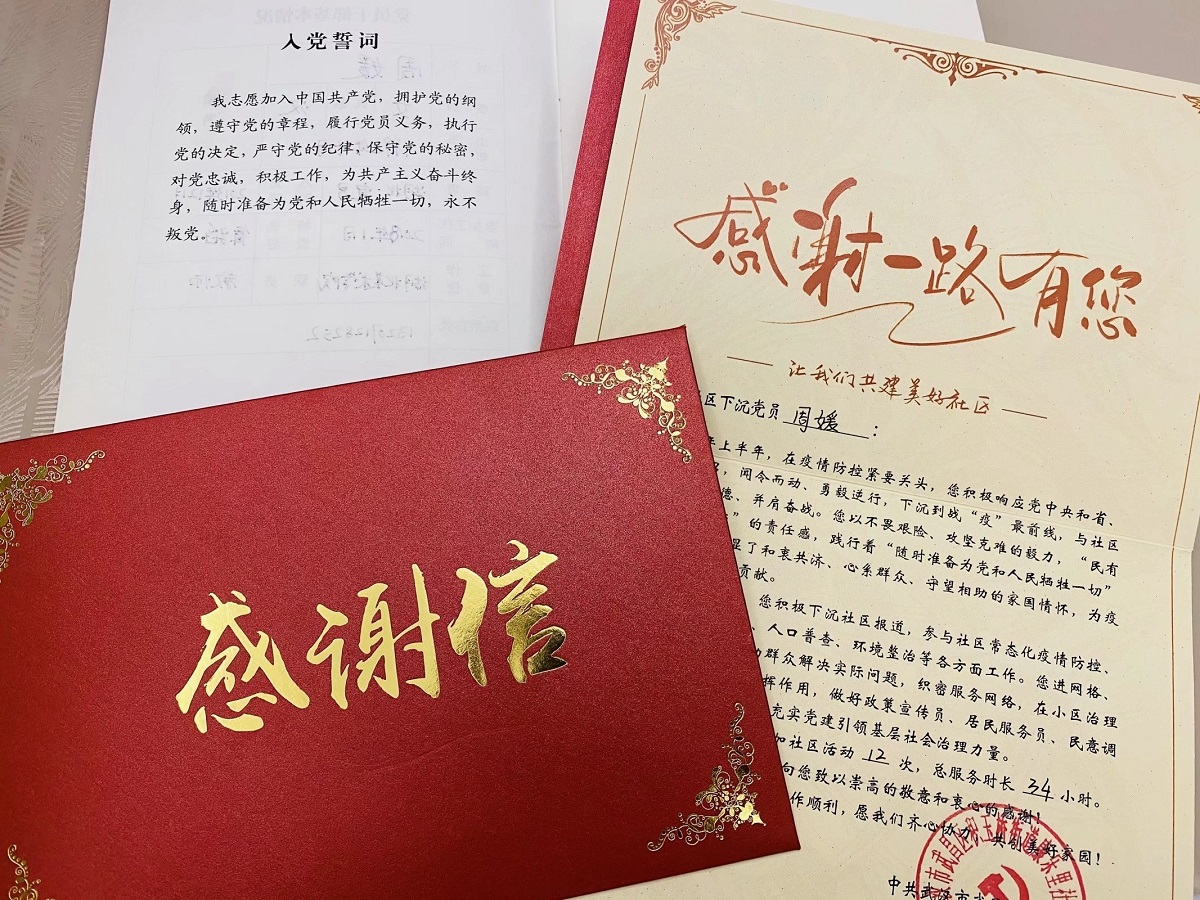 入党誓词
我志愿加入中国共产党，拥护党的纲
领，遵守党的章程，履行党员义务，执行
党的决定，严守党的纪律，保守党的秘密，
对党忠诚，积极工作，为共产主义奋斗终
身，随时准备为党和人民牺牲一切，永不
叛党。
感谢一路有您
让我们共建美好社区
区下沉党员 周媛：
年上半年，在疫情防控紧要关头，您积极响应党中央和省、
，闻令而动、勇毅逆行，下沉到战“疫”最前线，与社区
德、并肩奋战。您以不畏艰险、攻坚克难的毅力，“民有
”的责任感，践行着“随时准备为党和人民牺牲一切”
显了和衷共济、心系群众、守望相助的家国情怀，为疫
贡献。
您积极下沉社区报道，参与社区常态化疫情防控、
、人口普查、环境整治等各方面工作。您进网格、
群众解决实际问题，织密服务网络，在小区治理
挥作用，做好政策宣传员、居民服务员、民意调
充实党建引领基层社会治理力量。
加社区活动 12 次，总服务时长 34 小时。
向您致以崇高的敬意和衷心的感谢！
作顺利，愿我们齐心协力，共创美好家园！
中共武汉市
感谢信